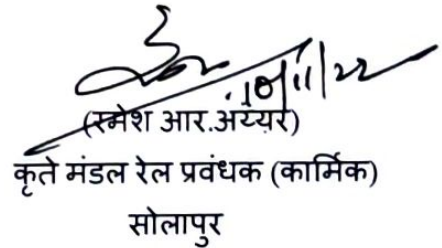 10/11/22
(रमेश आर.अय्यर)
कृते मंडल रेल प्रवंधक (कार्मिक)
सोलापुर